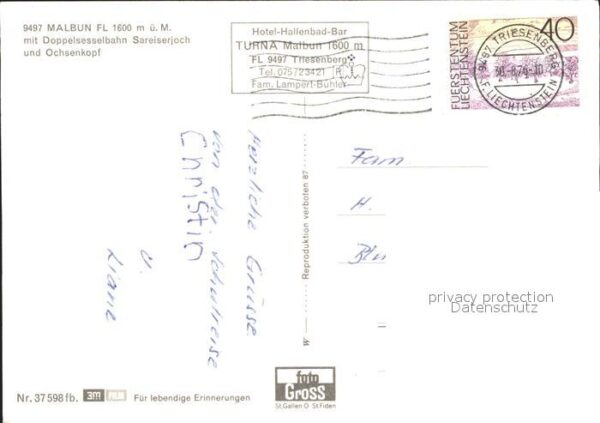 9497 MALBUN FL 1600 m ü. M.
mit Doppelsesselbahn Sareiserjoch
und Ochsenkopf
Hotel-Hallenbad-Bar
TURNA Malbun 1600 m
FL 9497 Triesenberg
Tel. 075/23421
Fam. Lampert-Bühler
FÜRSTENTUM
LIECHTENSTEIN
40
9497 TRIESENBERG
F. LIECHTENSTEIN
Herzliche Grüsse
von der Schulreise
Christin
u.
Liane
Reproduktion verboten 87
W
Fam
H.
privacy protection
Datenschutz
Nr. 37598fb.
3M
Für lebendige Erinnerungen
foto
Gross
St.Gallen O St.Fiden